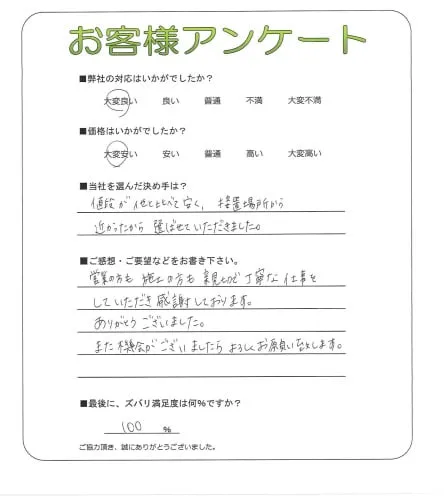 お客様アンケート
■弊社の対応はいかがでしたか？
大変良い 良い 普通 不満 大変不満
■価格はいかがでしたか？
大変安い 安い 普通 高い 大変高い
■当社を選んだ決め手は？
値段が他と比べて安く、設置場所から
近かったから 選ばせていただきました。
■ご感想・ご要望などをお書き下さい。
営業の方も 施工の方も 親切で丁寧な仕事を
していただき 感謝しております。
ありがとうございました。
また機会がございましたら よろしくお願い致します。
■最後に、ズバリ満足度は何％ですか？
100 ％
ご協力頂き、誠にありがとうございました。